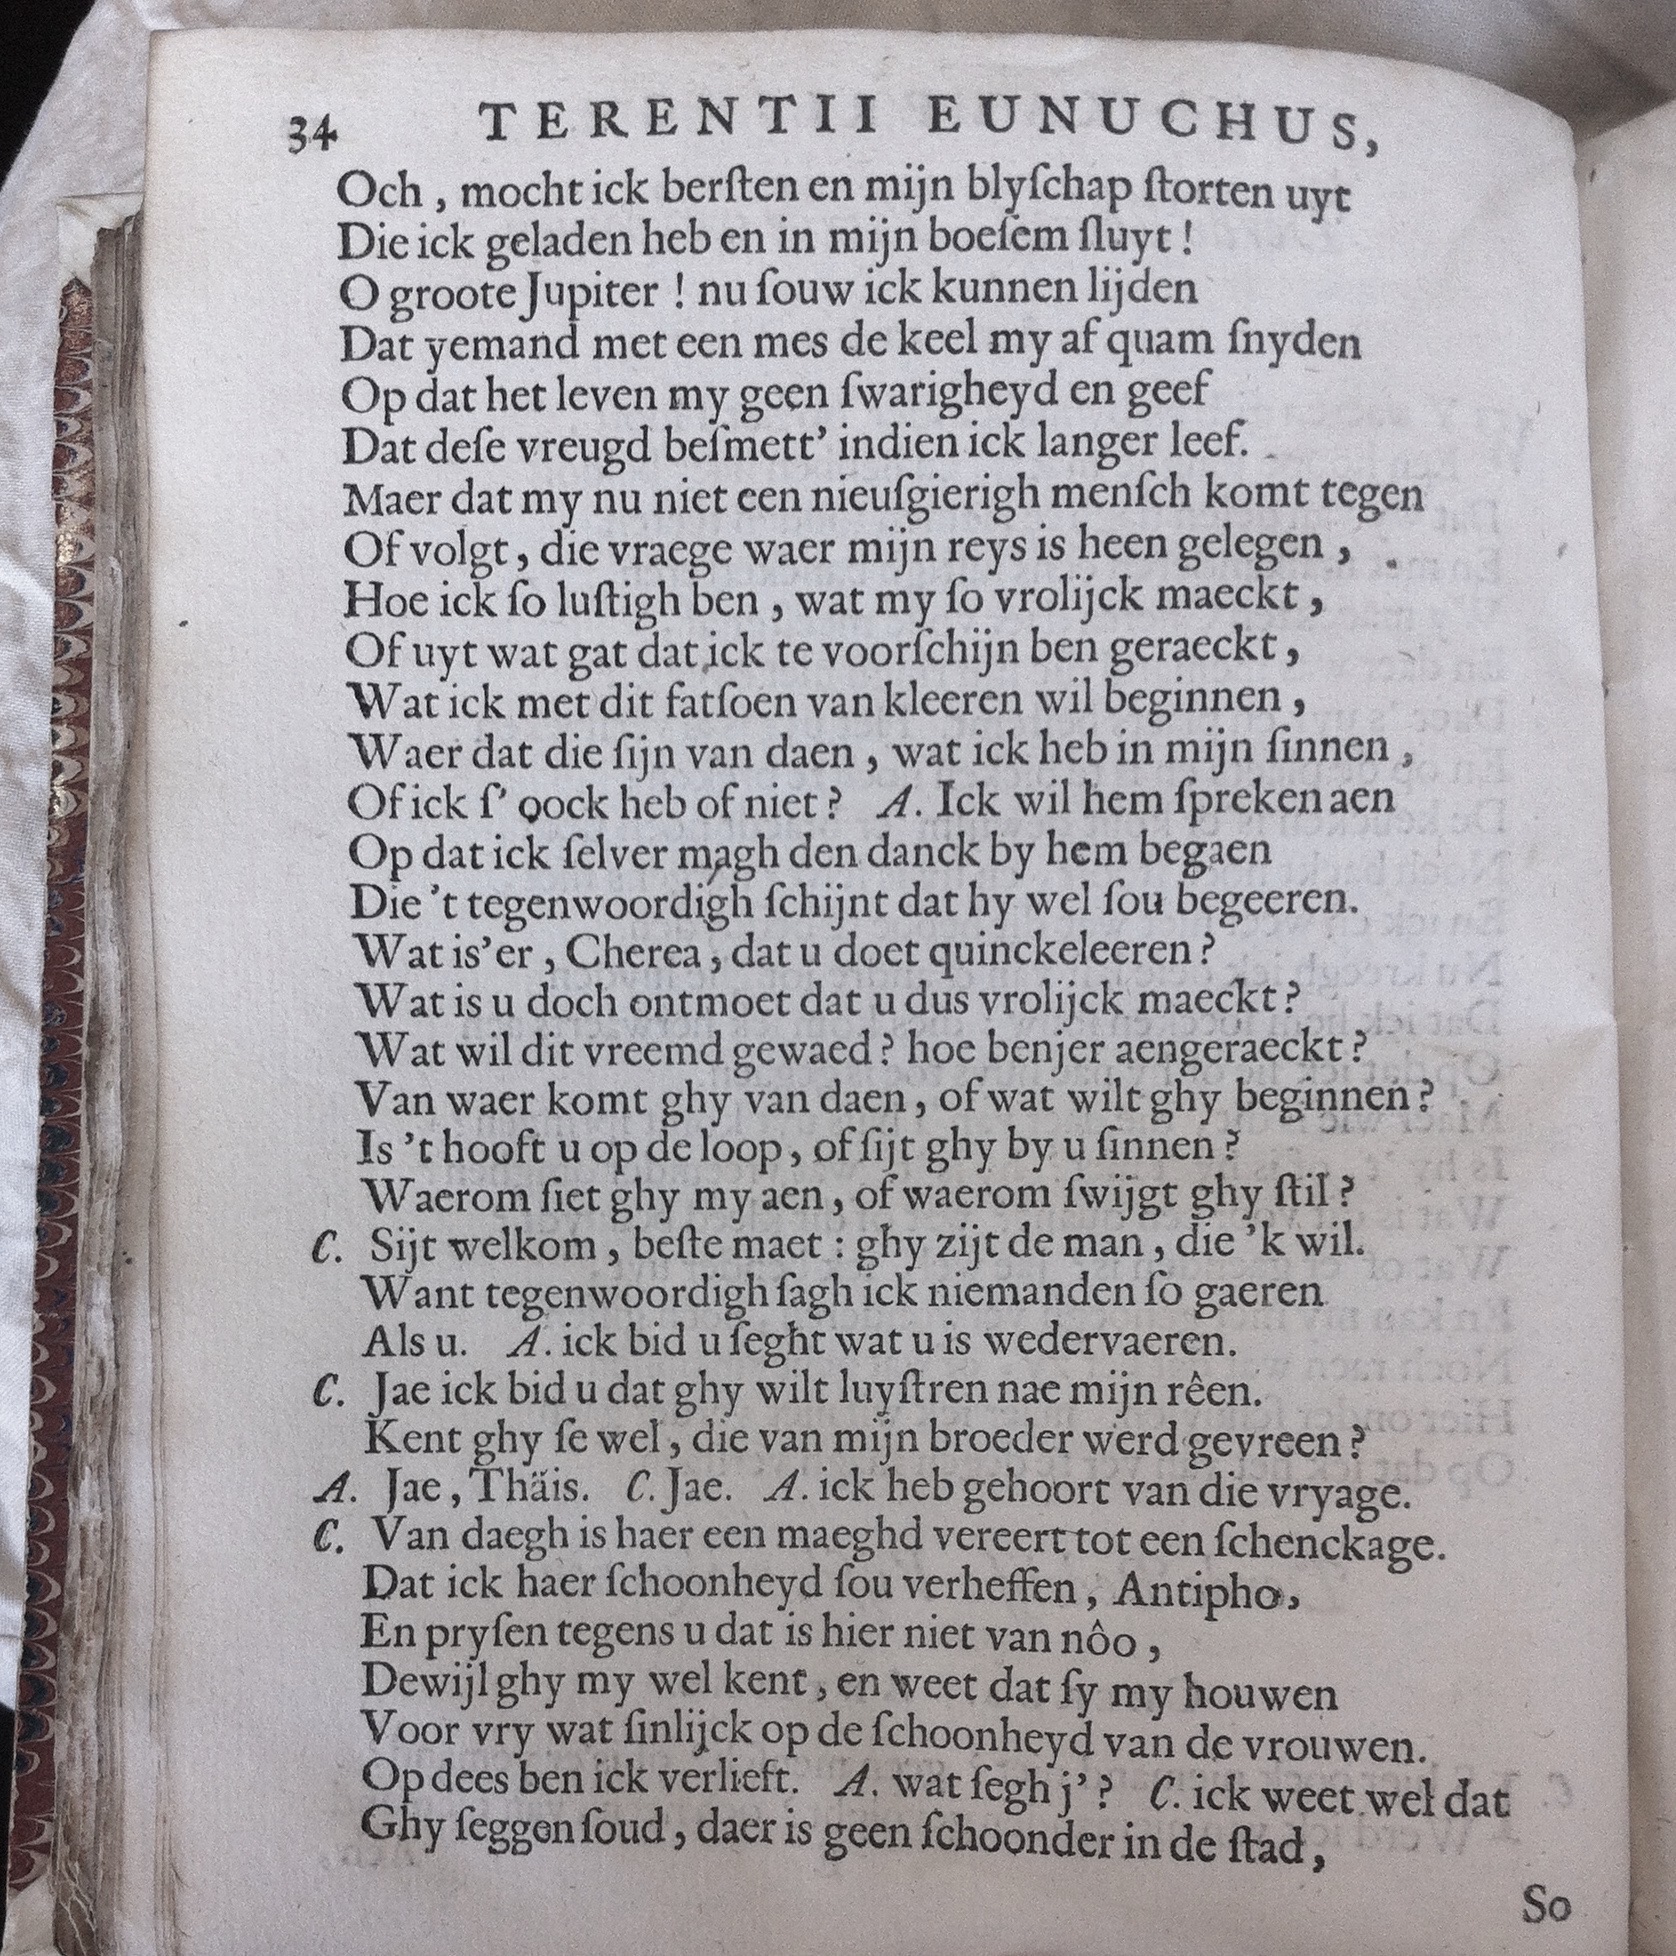 34 TERENTII EUNUCHUS,
Och, mocht ick berſten en mijn blyſchap ſtorten uyt
Die ick geladen heb en in mijn boeſem ſluyt!
O groote Jupiter! nu ſouw ick kunnen lijden
Dat yemand met een mes de keel my af quam ſnyden
Op dat het leven my geen ſwarigheyd en geef
Dat deſe vreugd beſmett' indien ick langer leef.
Maer dat my nu niet een nieuſgierigh menſch komt tegen
Of volgt, die vraege waer mijn reys is heen gelegen,
Hoe ick ſo luſtigh ben, wat my ſo vrolijck maeckt,
Of uyt wat gat dat ick te voorſchijn ben geraeckt,
Wat ick met dit fatſoen van kleeren wil beginnen,
Waer dat die ſijn van daen, wat ick heb in mijn ſinnen,
Of ick ſ' oock heb of niet? A. Ick wil hem ſpreken aen
Op dat ick ſelver magh den danck by hem begaen
Die 't tegenwoordigh ſchijnt dat hy wel ſou begeeren.
Wat is'er, Cherea, dat u doet quinckeleeren?
Wat is u doch ontmoet dat u dus vrolijck maeckt?
Wat wil dit vreemd gewaed? hoe benjer aengeraeckt?
Van waer komt ghy van daen, of wat wilt ghy beginnen?
Is 't hooft u op de loop, of ſijt ghy by u ſinnen?
Waerom ſiet ghy my aen, of waerom ſwijgt ghy ſtil?
C. Sijt welkom, beſte maet: ghy zijt de man, die 'k wil.
Want tegenwoordigh ſagh ick niemanden ſo gaeren
Als u. A. ick bid u ſeght wat u is wedervaeren.
C. Jae ick bid u dat ghy wilt luyſtren nae mijn rêen.
Kent ghy ſe wel, die van mijn broeder werd gevreen?
A. Jae, Thäis. C. Jae. A. ick heb gehoort van die vryage.
C. Van daegh is haer een maeghd vereert tot een ſchenckage.
Dat ick haer ſchoonheyd ſou verheffen, Antipho,
En pryſen tegens u dat is hier niet van nôo,
Dewijl ghy my wel kent, en weet dat ſy my houwen
Voor vry wat ſinlijck op de ſchoonheyd van de vrouwen.
Op dees ben ick verlieft. A. wat ſegh j'? C. ick weet wel dat
Ghy ſeggen ſoud, daer is geen ſchoonder in de ſtad,
So